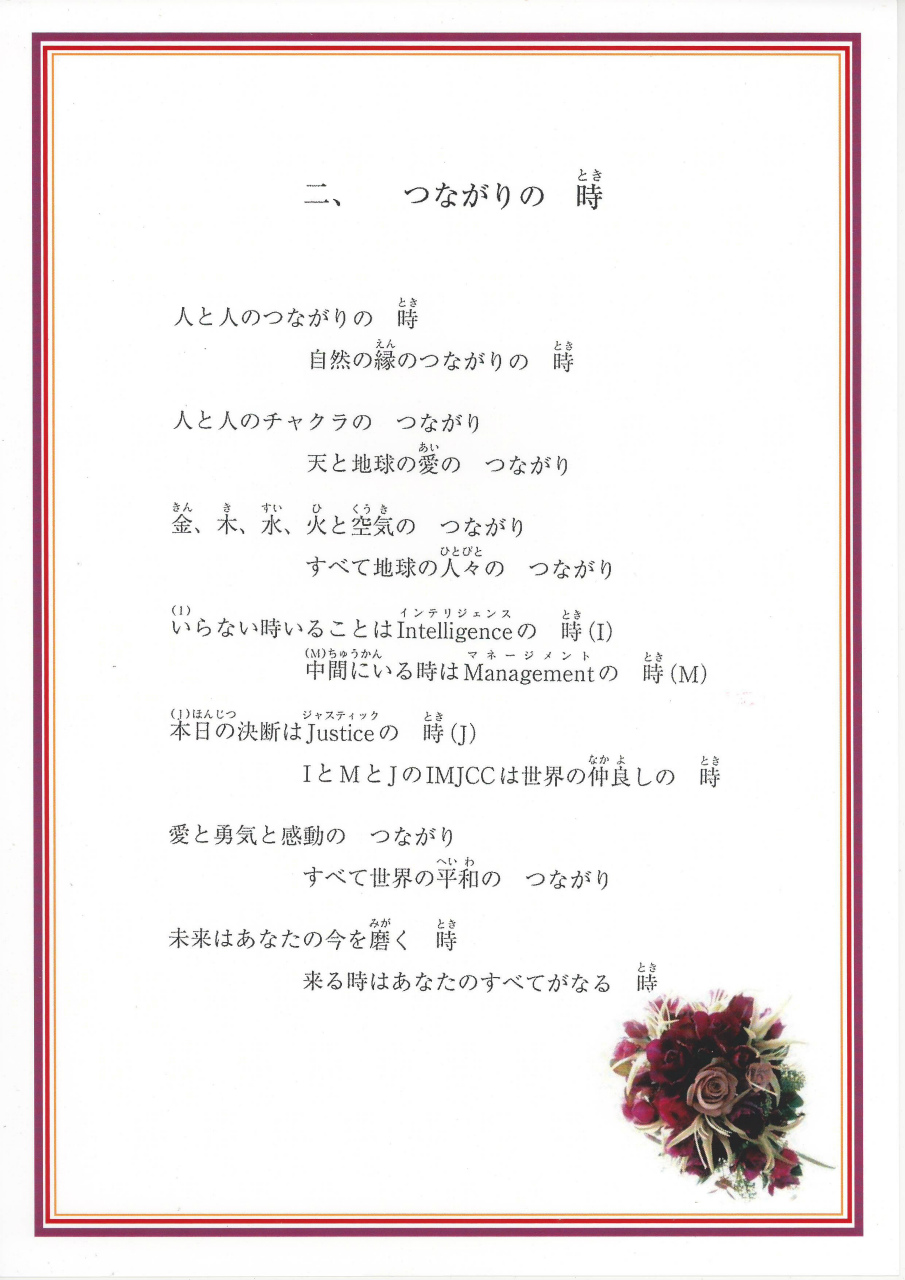 とき
二、　つながりの　時
とき
人と人のつながりの　時
えん　とき
自然の縁のつながりの　時
人と人のチャクラの　つながり
あい
天と地球の愛の　つながり
きん　き　すい　ひ　くうき
金、木、水、火と空気の　つながり
ひとびと
すべて地球の人々の　つながり
(I)　インテリジェンス　とき
いらない時いることはIntelligenceの　時(I)
(M)ちゅうかん　マネージメント　とき
中間にいる時はManagementの　時(M)
(J)ほんじつ　ジャスティック　とき
本日の決断はJusticeの　時(J)
なかよ　とき
IとMとJのIMJCCは世界の仲良しの　時
愛と勇気と感動の　つながり
へいわ
すべて世界の平和の　つながり
みが　とき
未来はあなたの今を磨く　時
とき
来る時はあなたのすべてがなる　時